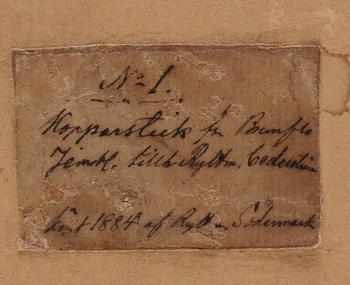 No 1.
Kopparstick fr Brunflo
Jemtl. tillh Ryttm. Cederström
känt 1884 af Ryttm Södermark